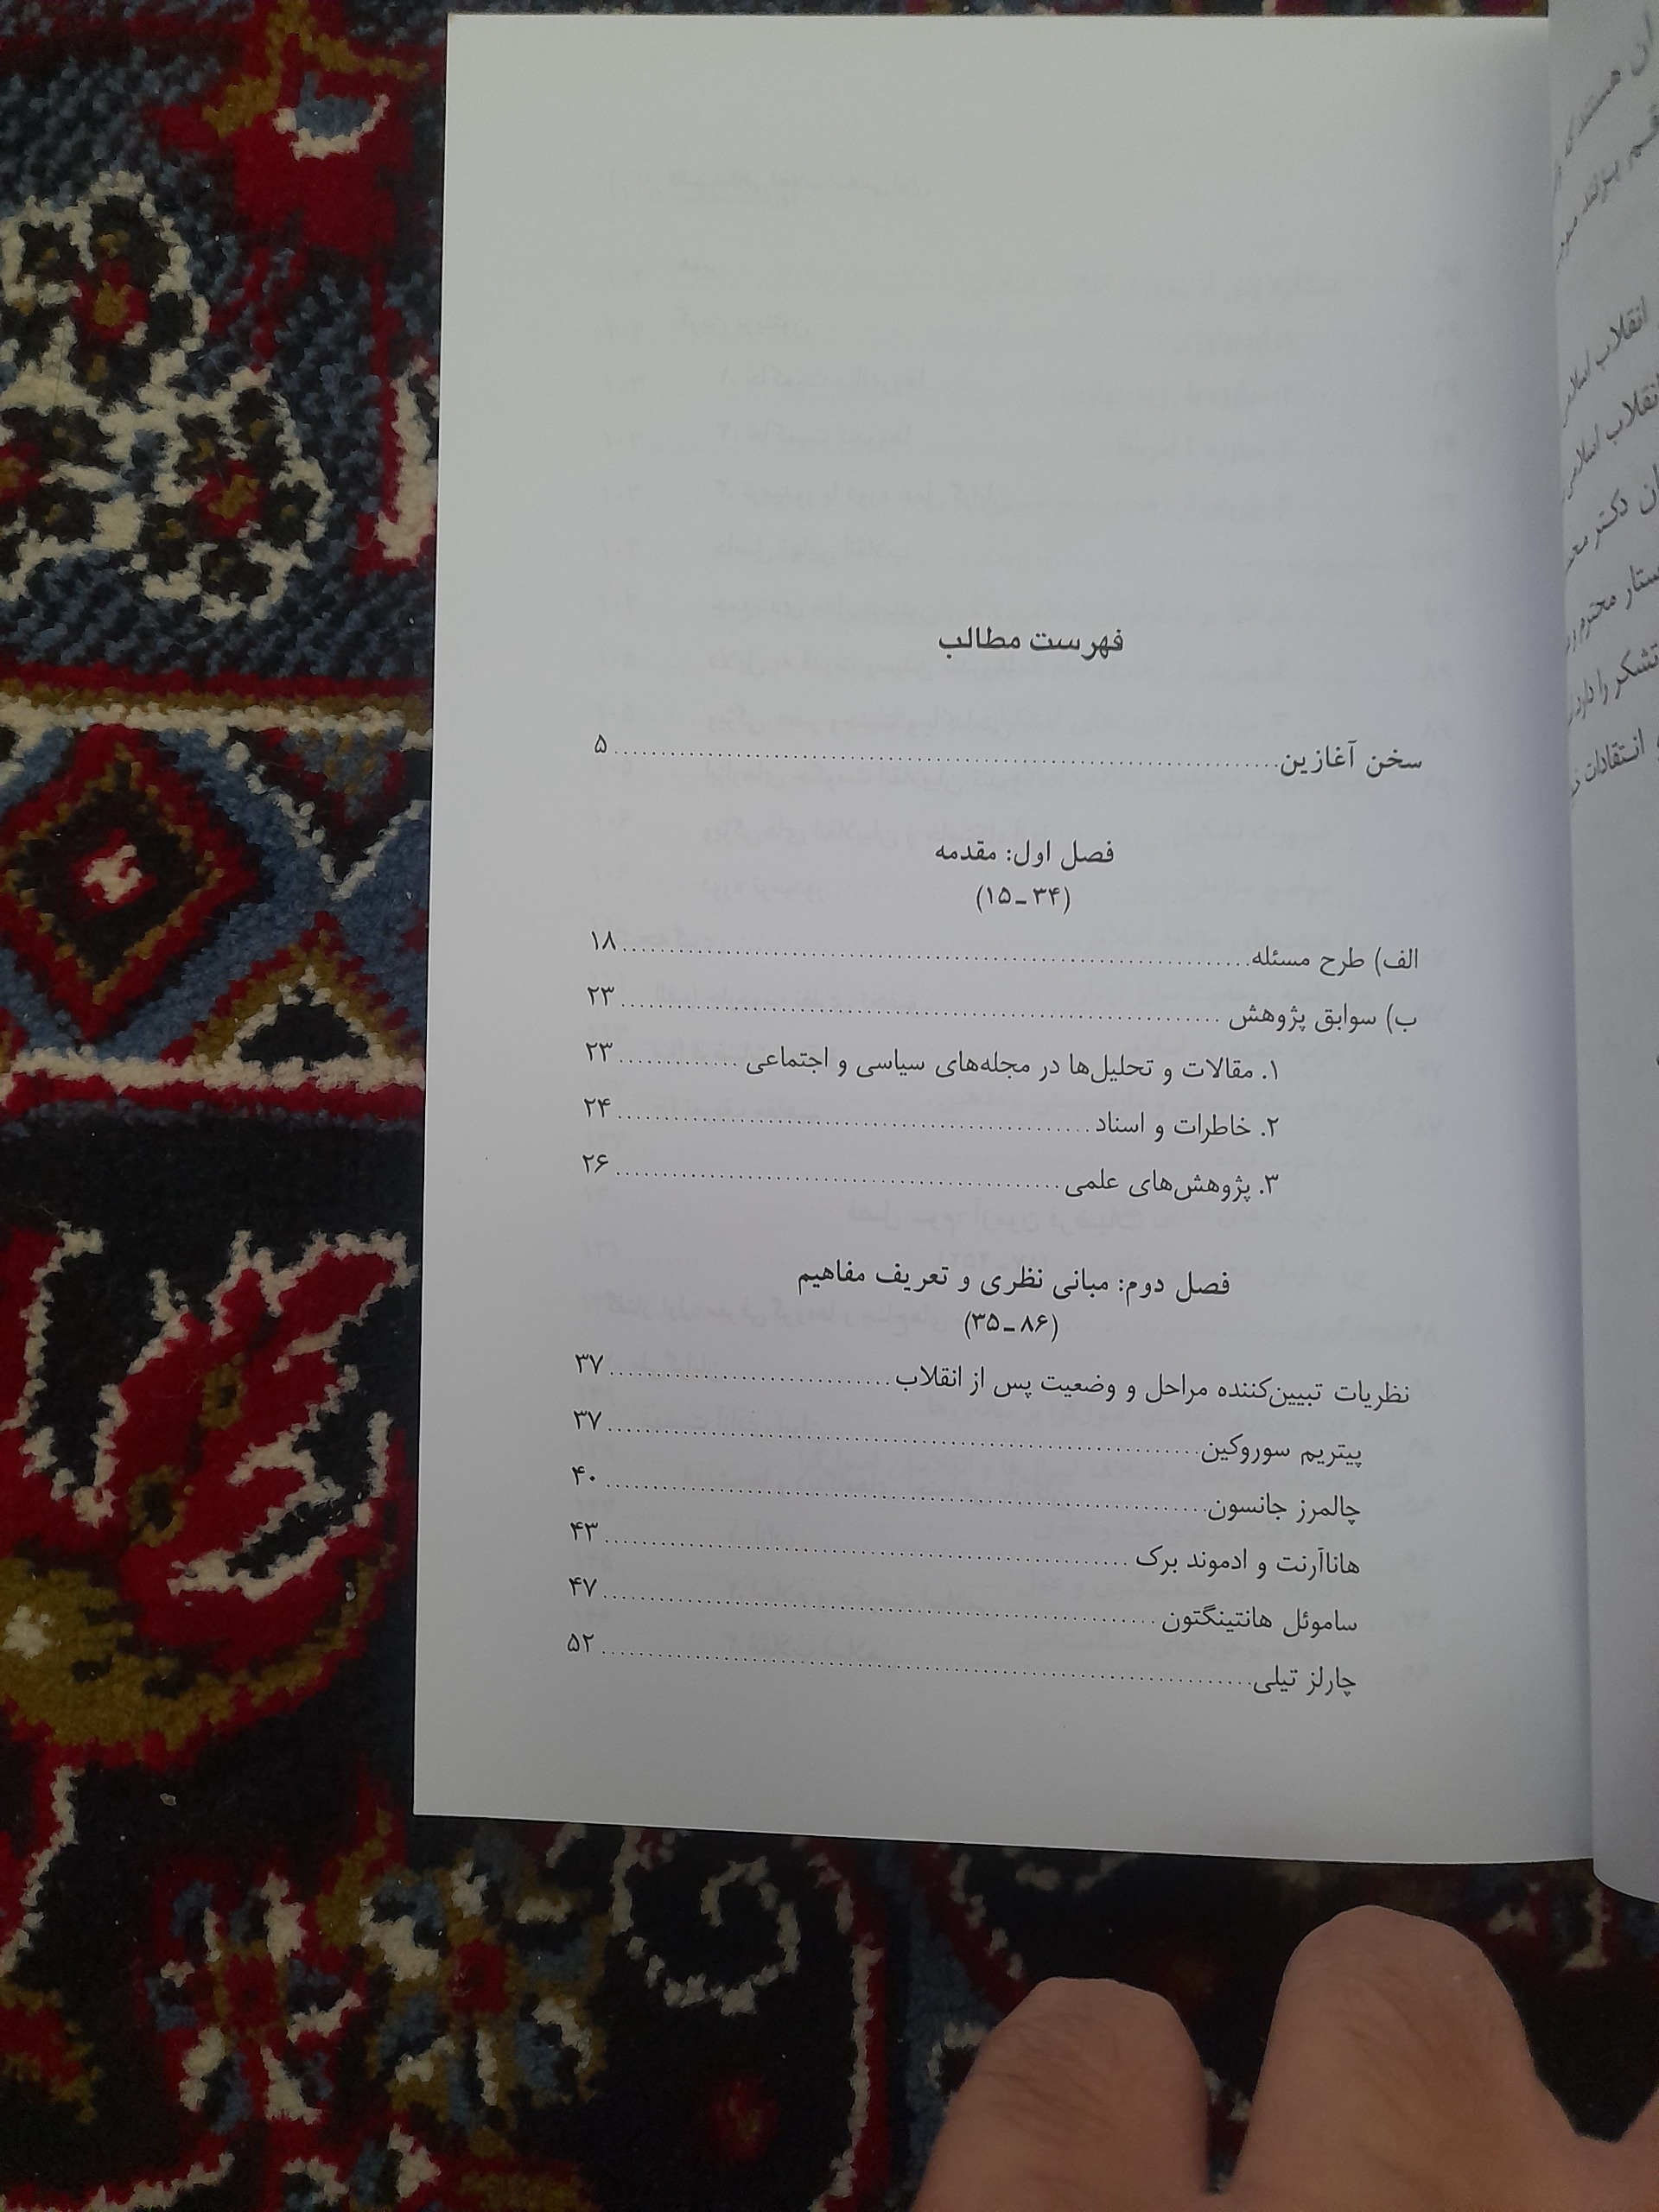 فهرست مطالب
سخن آغازین ۵
فصل اول: مقدمه
(۱۵ـ۳۴)
الف) طرح مسئله ۱۸
ب) سوابق پژوهش ۲۳
۱. مقالات و تحلیل‌ها در مجله‌های سیاسی و اجتماعی ۲۳
۲. خاطرات و اسناد ۲۴
۳. پژوهش‌های علمی ۲۶
فصل دوم: مبانی نظری و تعریف مفاهیم
(۳۵ـ۸۶)
نظریات تبیین‌کننده مراحل و وضعیت پس از انقلاب ۳۷
پیتریم سوروکین ۳۷
چالمرز جانسون ۴۰
هاناآرنت و ادموند برک ۴۳
ساموئل هانتینگتون ۴۷
چارلز تیلی ۵۲
هستند که
انقلاب اسلامی
انقلاب اسلامی
دکتر
محترم
تشکر را دارد
انتقادات